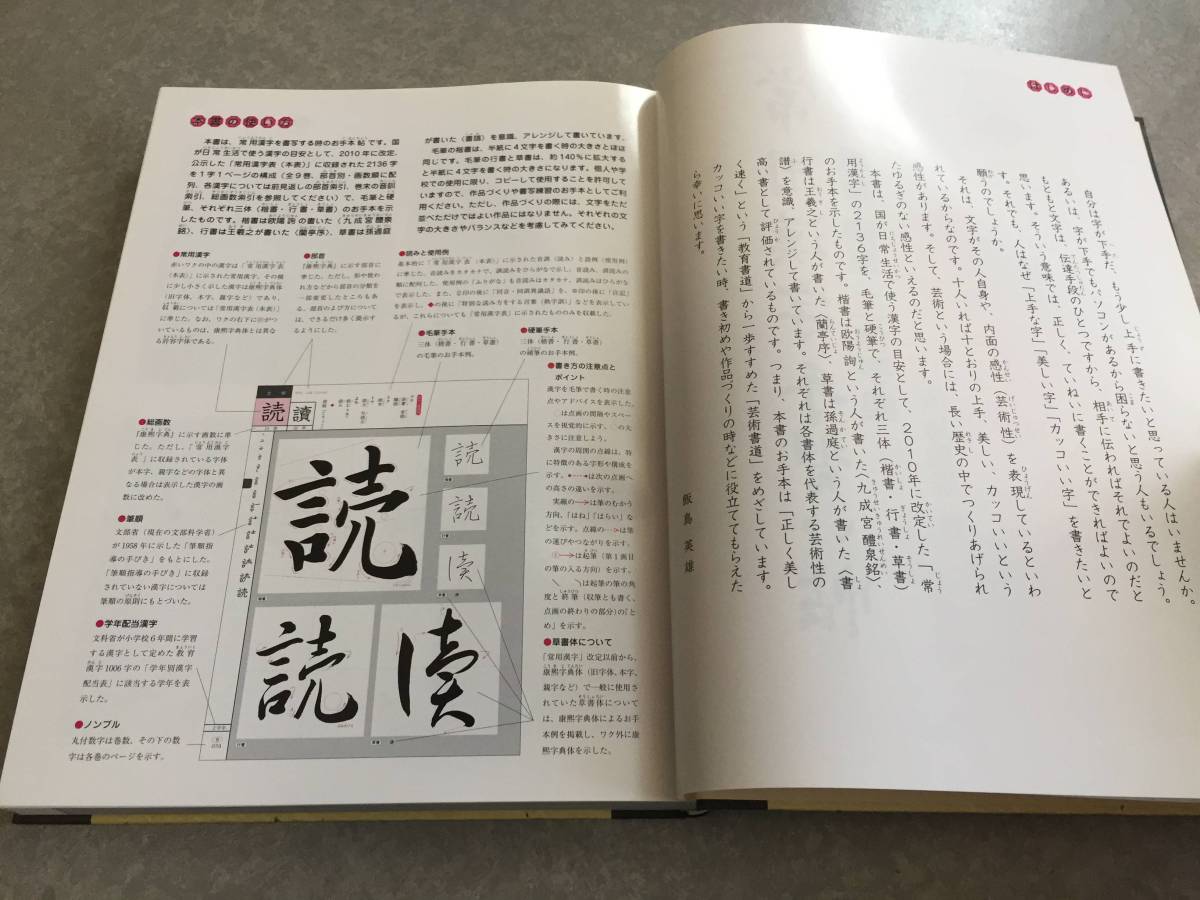 はじめに
自分は字が下手だ、もう少し上手に書きたいと思っている人はいませんか。
あるいは、字が下手でもパソコンがあるから困らないと思う人もいるでしょう。
もともと文字は、伝達手段のひとつですから、相手に伝わればそれでよいのだと
思います。そういう意味では、正しく、ていねいに書くことができればよいので
す。それでも、人はなぜ「上手な字」「美しい字」「カッコいい字」を書きたいと
願うのでしょうか。
それは、文字がその人自身や、内面の感性（芸術性）を表現しているといわ
れているからなのです。十人いれば十とおりの上手、美しい、カッコいいという
感性があります。そして、芸術という場合には、長い歴史の中でつくりあげられ
たゆるぎのない感性といえるのだと思います。
本書は、国が日常生活で使う漢字の目安として、2010年に改定した「常
用漢字」の2136字を、毛筆と硬筆で、それぞれ三体（楷書・行書・草書）
のお手本を示したものです。楷書は欧陽詢という人が書いた〈九成宮醴泉銘〉、
行書は王羲之という人が書いた〈蘭亭序〉、草書は孫過庭という人が書いた〈書
譜〉を意識、アレンジして書いています。それぞれは各書体を代表する芸術性の
高い書として評価されているものです。つまり、本書のお手本は「正しく美し
く速く」という「教育書道」から一歩すすめた「芸術書道」をめざしています。
カッコいい字を書きたい時、書き初めや作品づくりの時などに役立ててもらえた
ら幸いに思います。
飯島英雄
本書の使い方
本書は、常用漢字を書写する時のお手本帖です。国
が日常生活で使う漢字の目安として、2010年に改定、
公示した「常用漢字表（本表）」に収録された2136字
を1字1ページの構成（全9巻、部首別・画数順に配
列、各漢字については前見返しの部首索引、巻末の音訓
索引、総画数索引を参照してください）で、毛筆と硬
筆、それぞれ三体（楷書・行書・草書）のお手本を示
したものです。楷書は欧陽詢の書いた〈九成宮醴泉
銘〉、行書は王羲之が書いた〈蘭亭序〉、草書は孫過庭
が書いた〈書譜〉を意識、アレンジして書いています。
毛筆の楷書は、半紙に4文字を書く時の大きさとほぼ
同じです。毛筆の行書と草書は、約140％に拡大する
と半紙に4文字を書く時の大きさになります。個人や学
校での使用に限り、コピーして使用することを許可して
いますので、作品づくりや書写練習のお手本としてご利
用ください。ただし、作品づくりの際には、文字をただ
並べただけではよい作品にはなりません。それぞれの文
字の大きさやバランスなどを考慮してみてください。
●常用漢字
赤いワクの中の漢字は「常用漢字表
（本表）」に示された常用漢字、その横
に少し小さく示した漢字は康熙字典体
（旧字体、本字、親字など）であり、
収載については「常用漢字表（本表）」
に準じた。
●部首
『康熙字典』に示す部首に
準じた。
●読みと使用例
●毛筆手本
三体（楷書・行書・草書）
の毛筆のお手本例。
●硬筆手本
三体（楷書・行書・草書）
の硬筆のお手本例。
●書き方の注意点と
ポイント
漢字を毛筆で書く時の注意
点やアドバイスを表示した。
●総画数
『康熙字典』に示す画数に準
じた。ただし、「常用漢字
表」に収録されている字体
が本字、親字などの字体と異
なる場合は表示した漢字の画
数に改めた。
●筆順
文部省（現在の文部科学省）
が1958年に示した「筆順指
導の手びき」をもとにした。
「筆順指導の手びき」に収録
されていない漢字については
筆順の原則にもとづいた。
●学年配当漢字
文科省が小学校6年間に学習
する漢字として定めた教育
漢字1006字の「学年別漢字
配当表」に該当する学年を表
示した。
●ノンブル
丸付数字は巻数、その下の数
字は各巻のページを示す。
●草書体について
「常用漢字」改定以前から、
康熙字典体（旧字体、本字、
親字など）で一般に使用さ
れていた草書体について
は、康熙字典体によるお手
本例を掲載し、ワク外に康
熙字典体を示した。
読 讀
読
読